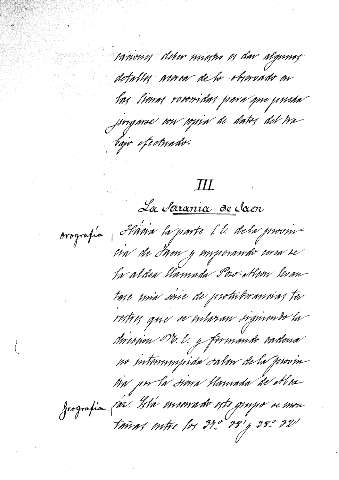 raciones deber nuestro es dar algunos
detalles acerca de lo observado en
las lineas recorridas para que pueda
juzgarse con copia de datos del tra-
bajo efectuado.
III
La Serania de Jaen
Orografia
Hácia la parte S.E. de la provin-
cia de Jaen y empezando cerca de
la aldea llamada Pozo-Alcon levan-
tase una série de protuberancias te-
rrestres que se enlazan siguiendo la
direccion N.E. y formando cadena
no interrumpida salen de la provin-
cia por la sierra llamada de Alca-
ráz. Está encerrado este grupo de mon-
Geografia
tañas entre los 37.° 38' y 38.° 32'